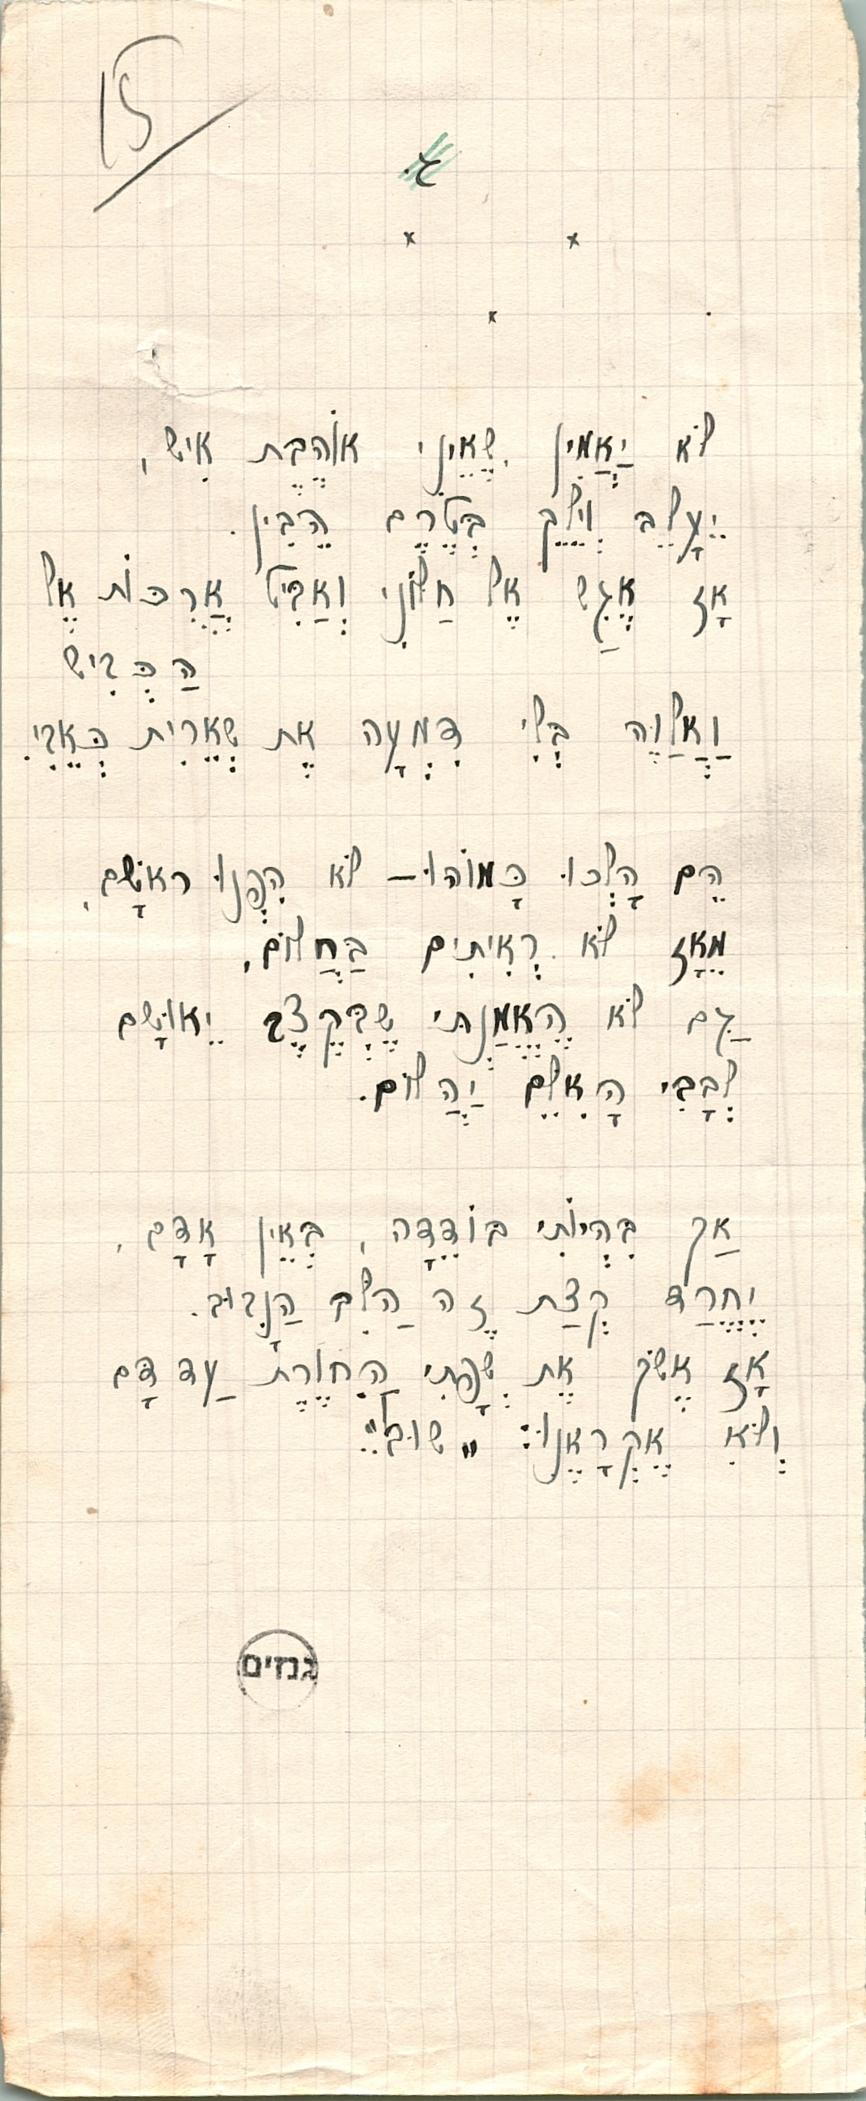 15
ג.
x x
x
לֹא יַאֲמִין, שֶׁאֵינִי אוֹהֶבֶת אִישׁ,
יֵעָלֵב וְיֵלֵךְ בְּטֶרֶם הֵבִין.
אָז אֶגַּשׁ אֶל חַלּוֹנִי וְאַבִּיט אֲרֻכּוֹת אֶל
הַכְּבִישׁ
וַאֲלַוֶּה בְּלִי דִּמְעָה אֶת שְׁאֵרִית כְּאֵבִי.
הֵם הָלְכוּ כָּמוֹהוּ – לֹא הִפְנוּ רֹאשָׁם,
מֵאָז לֹא רְאִיתִים בַּחֲלוֹם,
גַּם לֹא הֶאֱמַנְתִּי שֶׁבְּקֶצֶב יֵאוּשָׁם
לְבָבִי הָאִלֵּם יַהֲלוֹם.
אַךְ בִּהְיוֹתִי בּוֹדֵדָה, בְּאֵין אָדָם,
יֶחֱרַד קְצַת זֶה הַלֵּב הַנָּבוּב.
אָז אֶשֹּׁךְ אֶת שְׂפָתִי הַחִוֶּרֶת עַד דָּם
וְלֹא אֶקְרָאֶנּוּ: „שׁוּב!"
גנזים